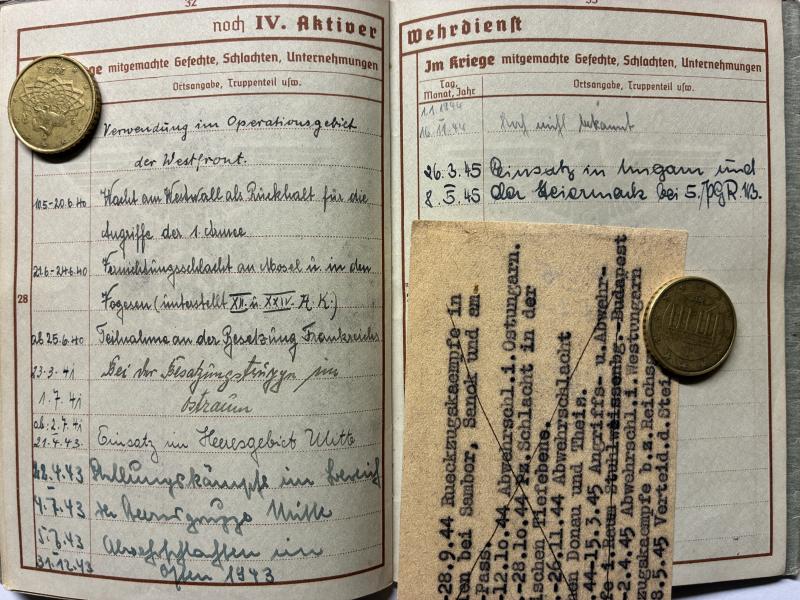 32
noch IV. Aktiver
ge mitgemachte Gefechte, Schlachten, Unternehmungen
Ortsangabe, Truppenteil usw.
Verwendung im Operationsgebiet
der Westfront.
10.5-20.6.40 Wacht am Westwall als Rückhalt für die
Angriffe der 1. Armee
21.6-24.6.40 Vernichtungsschlacht an Mosel u. in den
Vogesen (unterstellt XII. u. XXIV. A.K.)
ab 25.6.40 Teilnahme an der Besetzung Frankreichs
23.3.41 Bei der Besatzungstruppe im
1.7.41 Ostraum
ab: 2.7.41
21.4.43. Einsatz im Heeresgebiet Mitte
22.4.43 Stellungskämpfe im Bereich
4.7.43 der Heeresgruppe Mitte
5.7.43 Abwehrschlachten im
31.12.43 Osten 1943
28
33
Wehrdienst
Im Kriege mitgemachte Gefechte, Schlachten, Unternehmungen
Tag, Monat, Jahr
Ortsangabe, Truppenteil usw.
1.1.1944
Noch nicht bekannt
26.3.45 Einsatz in Ungarn und
8.5.45 der Steiermark bei 5./
-28.9.44 Rueckzugskaempfe in
en bei Sambor, Sanok und am
Pass.
-12.10.44 Abwehrschl.i.Ostungarn.
-28.10.44 Pz.Schlacht in der
ischen Tiefebene.
-26.11.44 Abwehrschlacht
en Donau und Theis.
.44-15.3.45 Angriffs- u.Abwehr-
fe i.Raum Stuhlweissenbg.-Budapest
-2.4.45 Abwehrschl.i.Westungarn
zugskaempfe b.z.Reichsg
8.5.45 Verteid.d.Stei